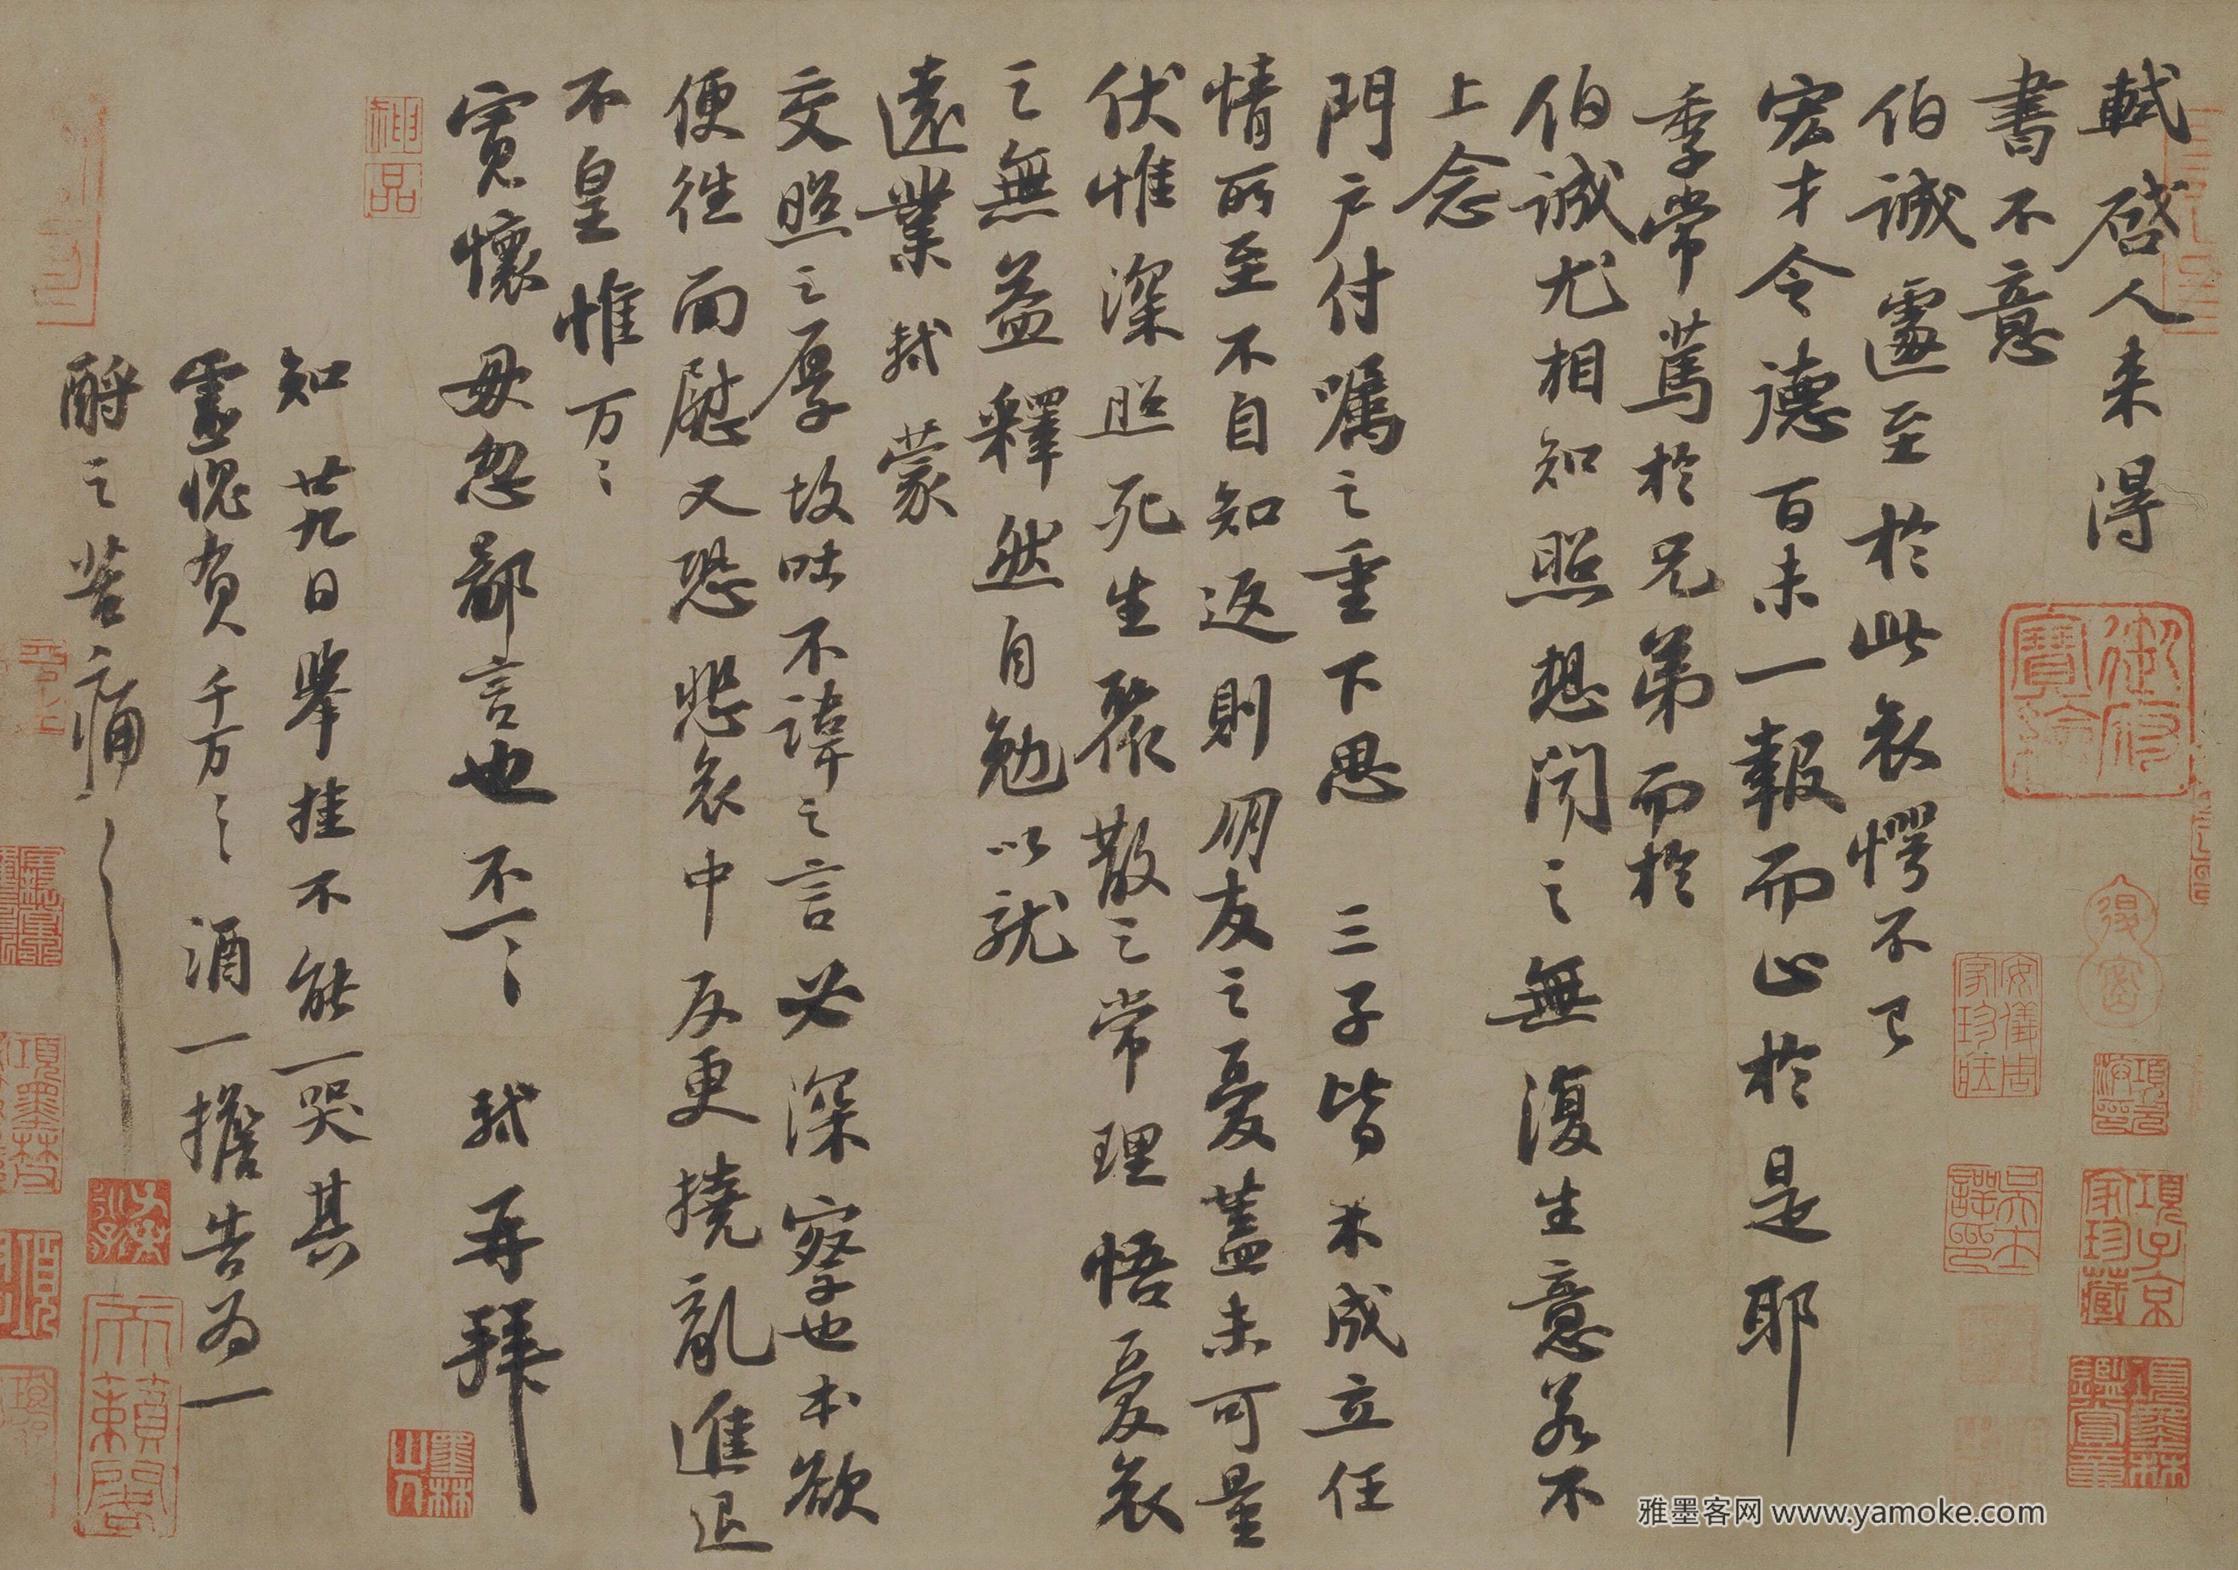 軾啓人来得
書不意
伯誠遽至於此哀愕不已
宏才令德百未一報而止於是耶
季常篤於兄弟而於
伯誠尤相知照想聞之無復生意若不
上念
門户付囑之重下思三子皆未成立任
情所至不自知返則朋友之憂蓋未可量
伏惟深照死生聚散之常理悟憂哀
之無益釋然自勉以就
遠業軾蒙
交照之厚故吐不諱之言必深察也本欲
便往面慰又恐悲哀中反更撓亂進退
不皇惟万〻
寬懷毋忽鄙言也不一〻軾再拜
知廿九日舉挂不能一哭其
靈愧負千万〻酒一擔告为一
酹之苦痛〻
御府寶繪
神品
安儀周家珍藏
項子京家珍藏
項墨林鑑賞章
墨林山人
天籟閣
雅墨客网 www.yamoke.com